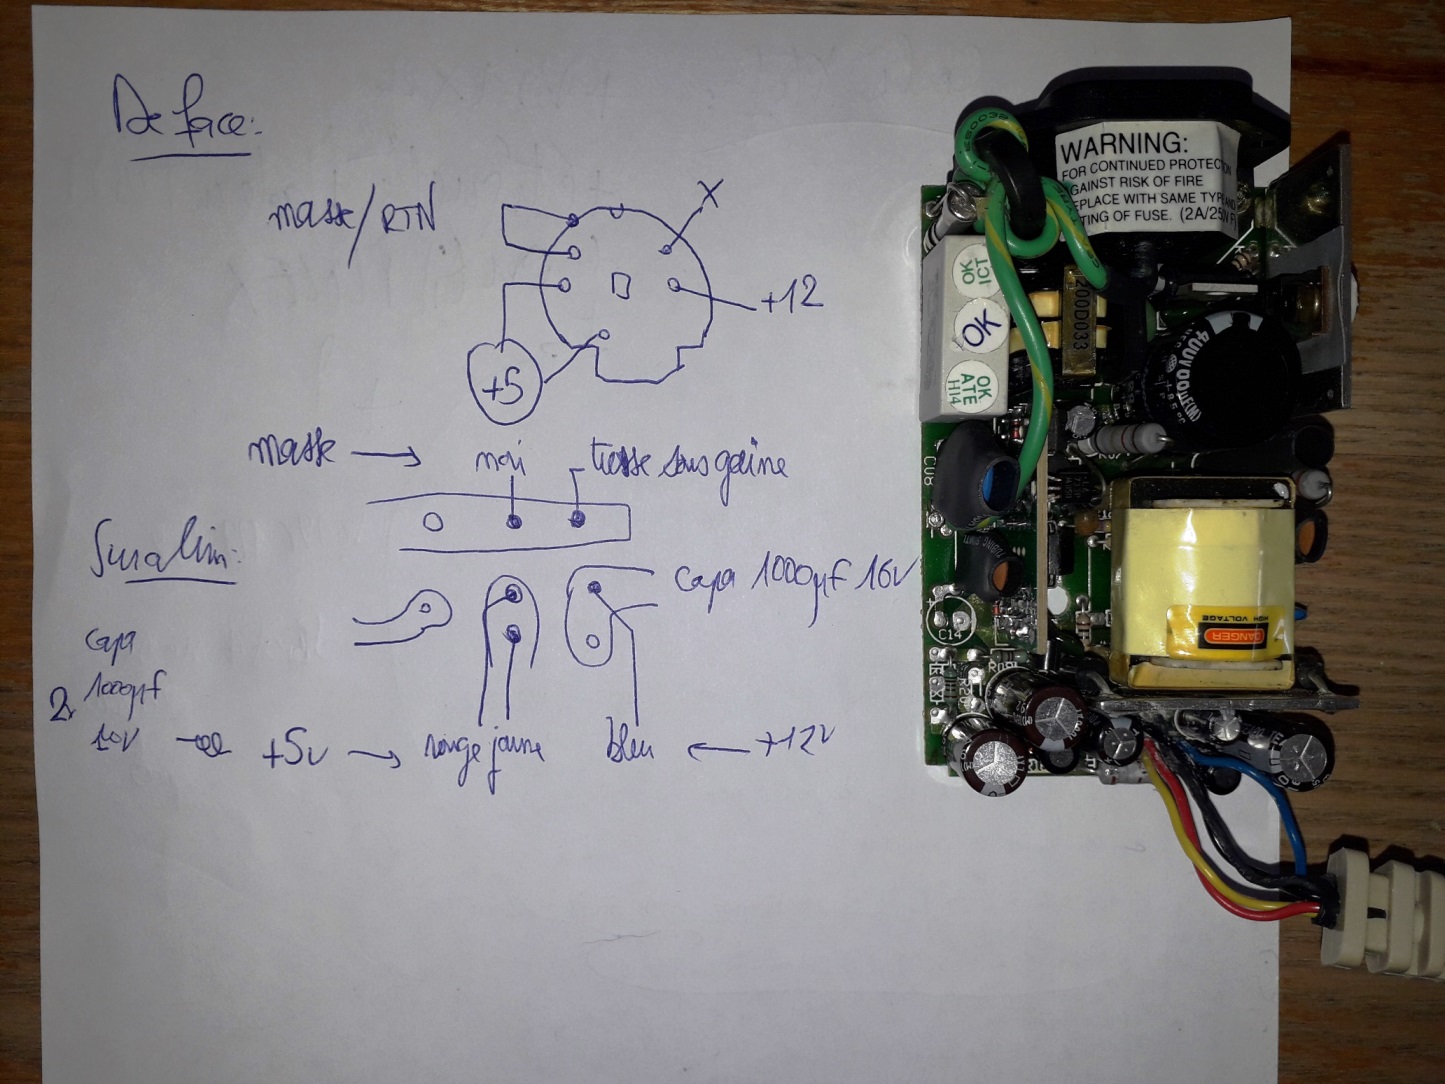 De face:
masse/RTN
X
+12
+5
masse → noir
tresse sous gaine
Sur alim:
capa 1000µf 16V
capa
2x 1000µf
10V
+5v → rouge jaune
bleu ← +12V
WARNING:
FOR CONTINUED PROTECTION
AGAINST RISK OF FIRE
REPLACE WITH SAME TYPE AND
RATING OF FUSE. (2A/250V F)
OK
ICT
OK
OK
ATE
H14
200D033
C14
DANGER
HIGH VOLTAGE